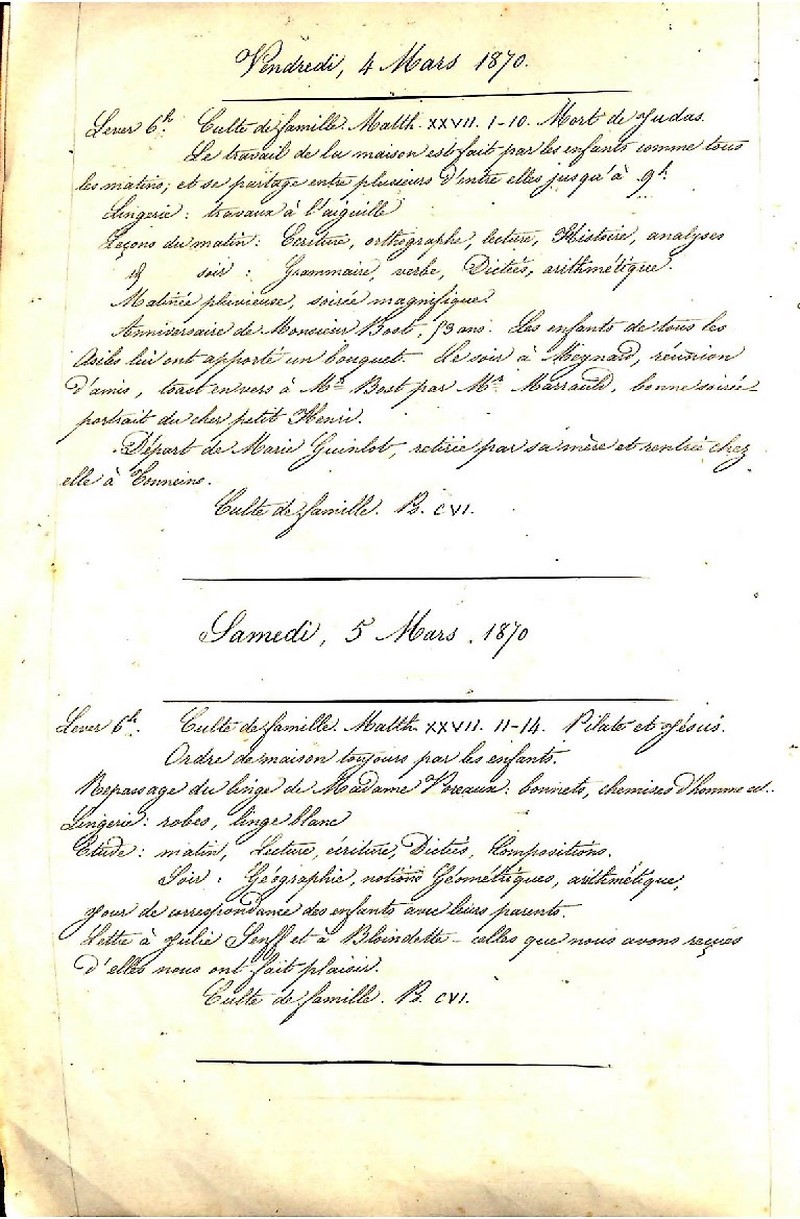 Vendredi, 4 Mars 1870.
Lever 6h. Culte de famille. Matth. XXVII. 1-10. Mort de Judas.
Le travail de la maison est fait par les enfants comme tous
les matins; et se partage entre plusieurs d'entre elles jusqu'à 9h.
Lingerie: travaux à l'aiguille
Leçons du matin: Ecriture, orthographe, lecture, Histoire, analyses
id soir: Grammaire, verbe, Dictées, arithmétique.
Matinée pluvieuse, soirée magnifique.
Anniversaire de Monsieur Bost, 53 ans. Les enfants de tous les
Asiles lui ont apporté un bouquet. Le soir à Meynard, réunion
d'amis, toast en vers à Mr Bost par Mr Marrauld, bonne soirée
portrait du cher petit Henri.
Départ de Marie Guinlot, retirée par sa mère et rentrée chez
elle à Tonneins.
Culte de famille. Ps. CVI.
Samedi, 5 Mars. 1870
Lever 6h. Culte de famille. Matth. XXVII. 11-14. Pilate et Jésus.
Ordre de maison toujours par les enfants.
Repassage du linge de Madame : bonnets, chemises d'homme et..
Lingerie: robes, linge blanc
Etude: matin, Lecture, écriture, Dictées, Compositions.
Soir: Géographie, notions Géométriques, arithmétique,
Jour de correspondance des enfants avec leurs parents.
Lettre à Julie Senff et à Blondette - celles que nous avons reçues
d'elles nous ont fait plaisir.
Culte de famille. Ps. CVI.